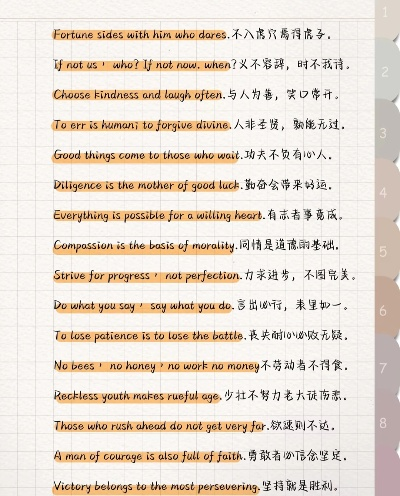 Fortune sides with him who dares.不入虎穴焉得虎子。
If not us, who? If not now, when?义不容辞，时不我待。
Choose kindness and laugh often.与人为善，笑口常开。
To err is human; to forgive divine.人非圣贤，孰能无过。
Good things come to those who wait.功夫不负有心人。
Diligence is the mother of good luck.勤奋会带来好运。
Everything is possible for a willing heart.有志者事竟成。
Compassion is the basis of morality.同情是道德的基础。
Strive for progress, not perfection.力求进步，不图完美。
Do what you say, say what you do.言出必行，表里如一。
To lose patience is to lose the battle.丧失耐心必败无疑。
No bees, no honey, no work no money不劳动者不得食。
Reckless youth makes rueful age.少壮不努力老大徒伤悲。
Those who rush ahead do not get very far.欲速则不达。
A man of courage is also full of faith.勇敢者必信念坚定。
Victory belongs to the most persevering.坚持就是胜利。
1
2
3
4
5
6
7
8